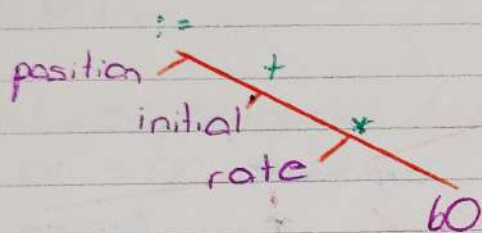 :=
position +
initial *
rate
60